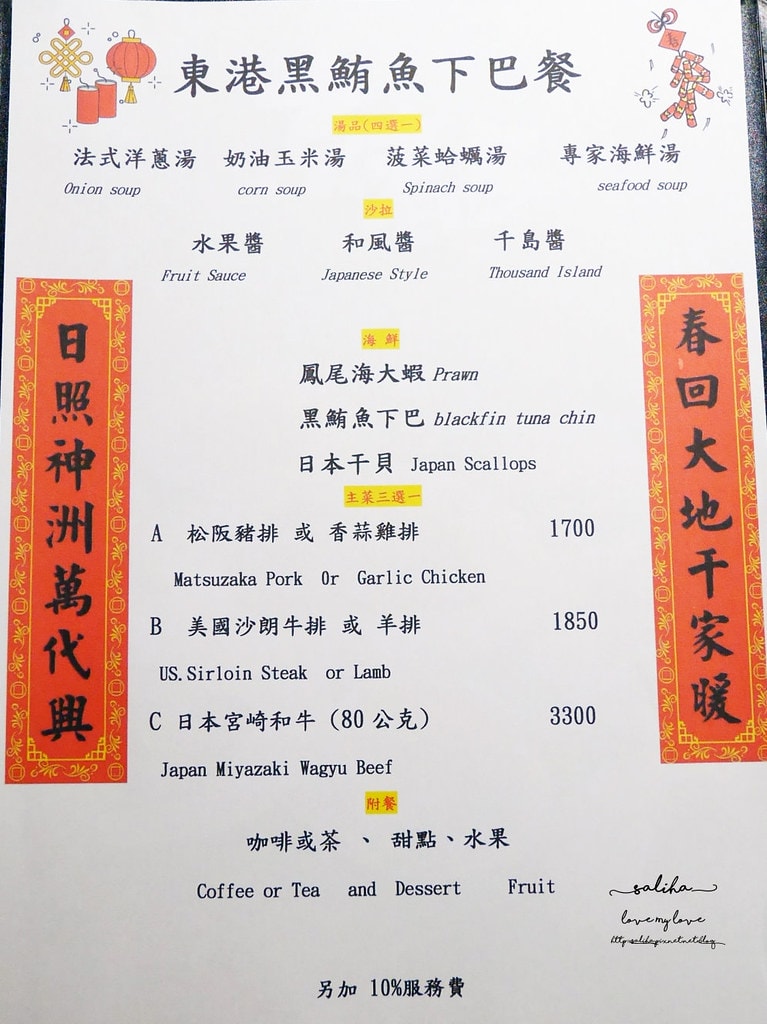 東港黑鮪魚下巴餐
湯品(四選一)
法式洋蔥湯 奶油玉米湯 菠菜蛤蠣湯 專家海鮮湯
Onion soup corn soup Spinach soup seafood soup
沙拉
水果醬 和風醬 千島醬
Fruit Sauce Japanese Style Thousand Island
海 鮮
鳳尾海大蝦 Prawn
黑鮪魚下巴 blackfin tuna chin
日本干貝 Japan Scallops
主菜三選一
A 松阪豬排 或 香蒜雞排 1700
Matsuzaka Pork Or Garlic Chicken
B 美國沙朗牛排 或 羊排 1850
US.Sirloin Steak or Lamb
C 日本宮崎和牛 (80 公克) 3300
Japan Miyazaki Wagyu Beef
附餐
咖啡或茶 、 甜點、水果
Coffee or Tea and Dessert Fruit
另加 10%服務費
春回大地千家暖
日照神洲萬代興
saliha
love my love
http://saliha.pixnet.net/blog